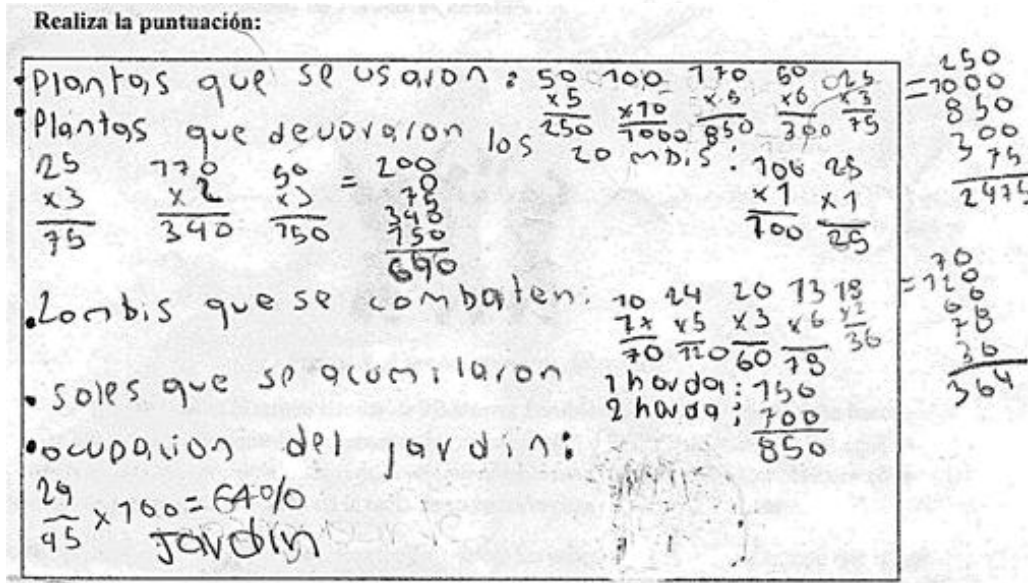 Realiza la puntuación:
• Plantas que se usaron: 50 100 170 50 25
x5 x10 x5 x6 x3
250 1000 850 300 75
= 250
1000
850
300
75
2475
• Plantas que devoraron los zombis:
100 25
x1 x1
100 25
25 170 50
x3 x2 x3
75 340 150
= 200
75
340
150
690
• Zombis que se combaten:
10 24 20 13 18
7x x5 x3 x6 x2
70 120 60 78 36
= 70
120
60
78
36
364
• soles que se acumilaron 1 horda: 150
2 horda: 700
850
• ocupacion del jardin:
29
45 x 100 = 64%
Jardin